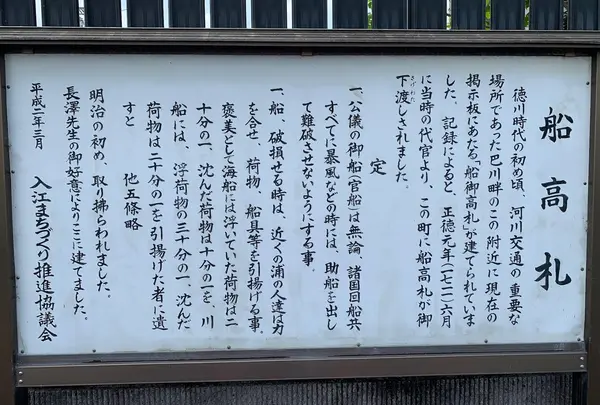 船高札
徳川時代の初め頃、河川交通の重要な
場所であった巴川畔のこの附近に現在の
掲示板にあたる「船御高札」が建てられていま
した。記録によると、正徳元年(一七一一)六月
に当時の代官より、この町に船高札が御
下渡しされました。
さげわた
定
一、公儀の御船(官船)は無論、諸国回船共
すべてに暴風などの時には、助船を出し
て難破させないようにする事。
一、船、破損せる時は、近くの浦の人達は力
を合せ、荷物、船具等を引揚げる事。
褒美として海船には浮いていた荷物は二
十分の一、沈んだ荷物は十分の一を、川
船には、浮荷物の三十分の一、沈んだ
荷物は二十分の一を引揚げた者に遣
すと 他五條略
明治の初め、取り拂らわれました。
長澤先生の御好意によりここに建てました。
平成二年三月 入江まちづくり推進協議会